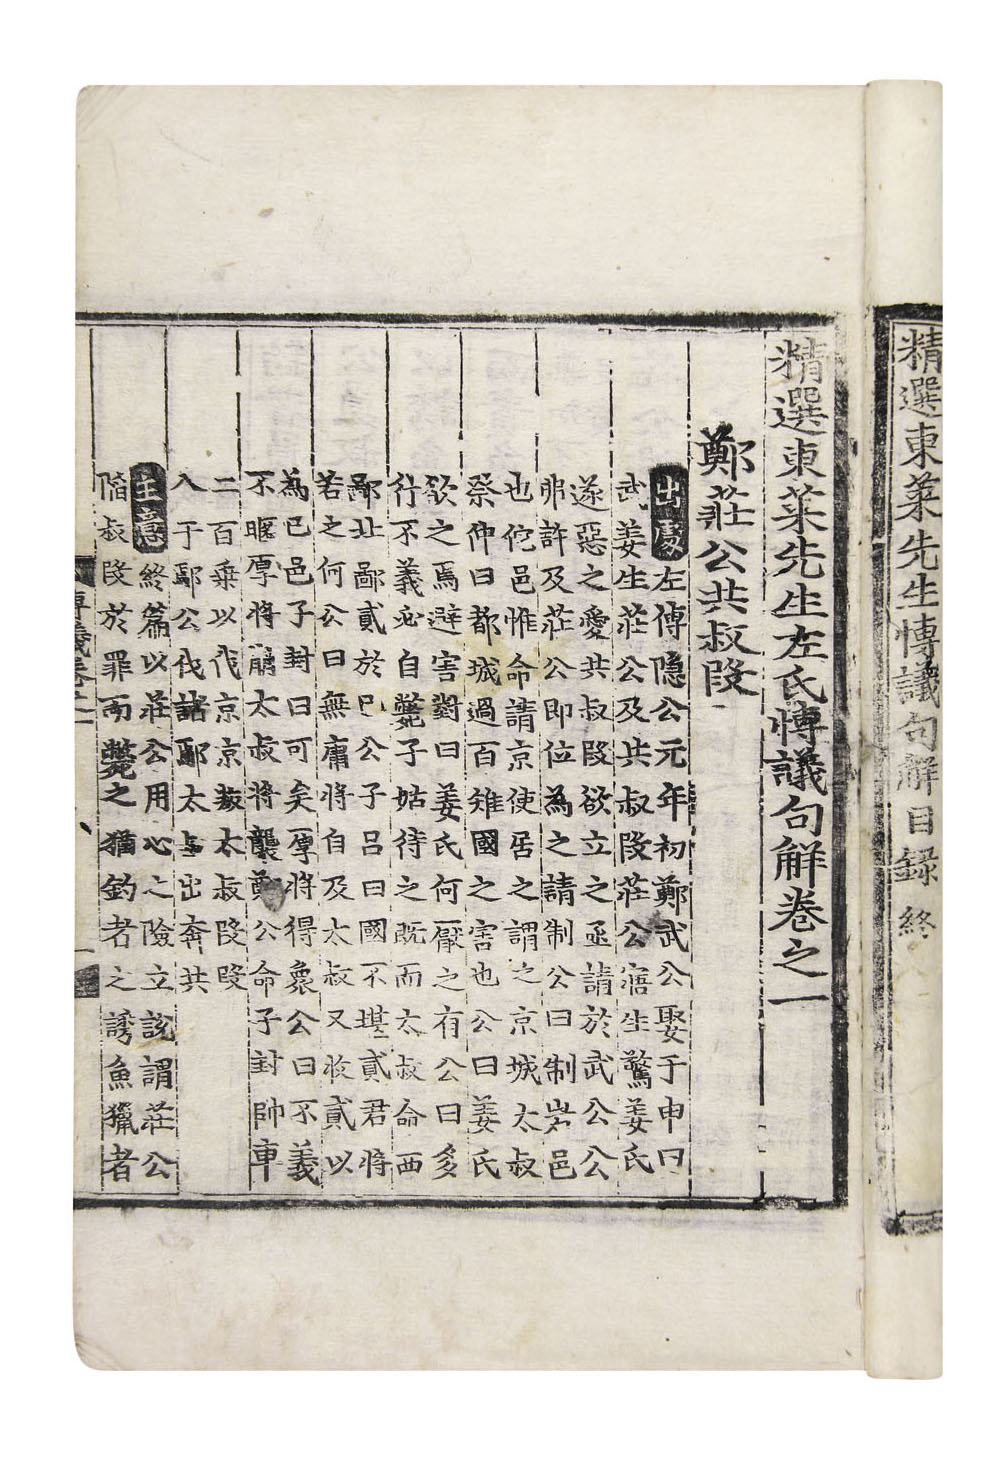 精選東萊先生博議句解目錄終
精選東萊先生左氏博議句解卷之一
鄭莊公共叔段
出處左傳隱公元年初鄭武公娶于申曰
武姜生莊公及共叔段莊公寤生驚姜氏
遂惡之愛共叔段欲立之亟請於武公公
弗許及莊公即位為之請制公曰制岩邑
也佗邑惟命請京使居之謂之京城太叔
祭仲曰都城過百雉國之害也公曰姜氏
欲之焉避害對曰姜氏何厭之有公曰多
行不義必自斃子姑待之既而太叔命西
鄙北鄙貳於己公子呂曰國不堪貳君將
若之何公曰無庸將自及太叔又收貳以
為己邑子封曰可矣厚將得衆公曰不義
不暱厚將崩太叔將襲鄭公命子封帥車
二百乘以伐京京叛太叔段段
入于鄢公伐諸鄢太叔出奔共
主意終篇以莊公用心之險立說謂莊公
陷叔段於罪而斃之猶釣者之誘魚獵者